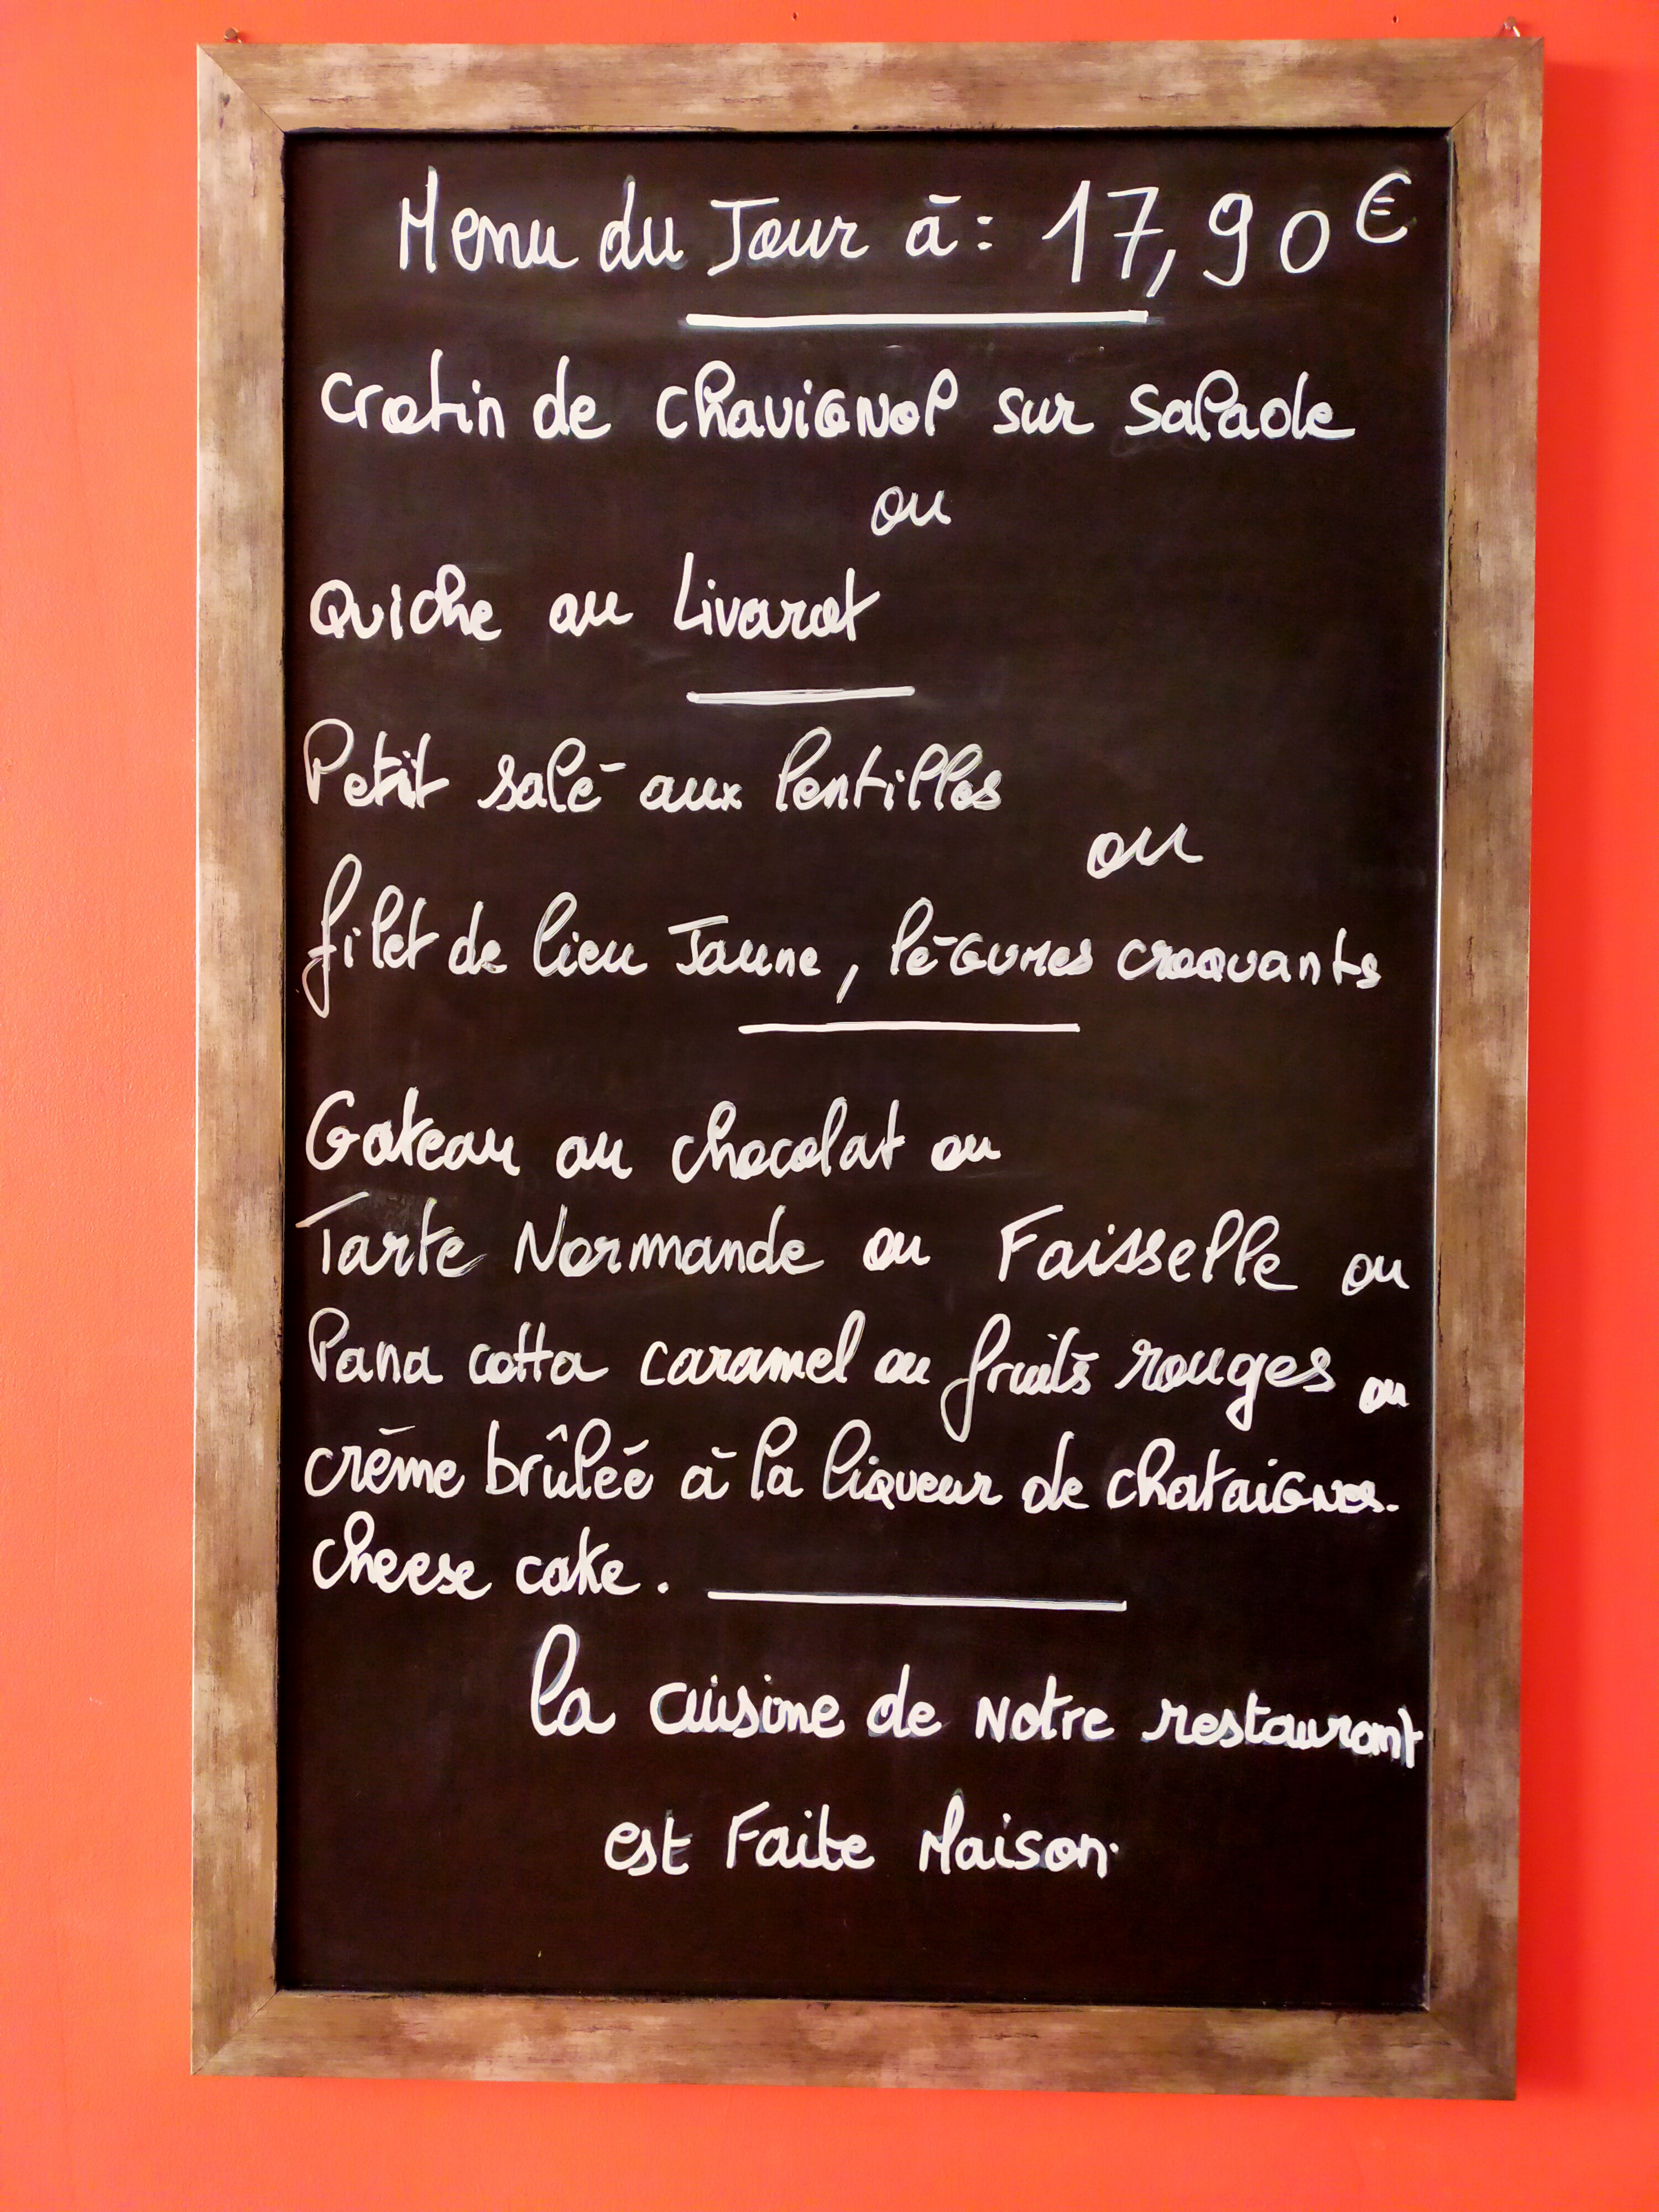 Menu du Jour à : 17,90 €
Crotin de Chavignol sur Salade
ou
Quiche au Livarot
Petit salé aux lentilles
ou
filet de lieu Jaune, légumes croquants
Gateau au chocolat ou
Tarte Normande ou Faisselle ou
Pana cotta caramel ou fruits rouges ou
crème brûlée à la liqueur de chataignes.
cheese cake.
la cuisine de Notre restaurant
est Faite Maison.